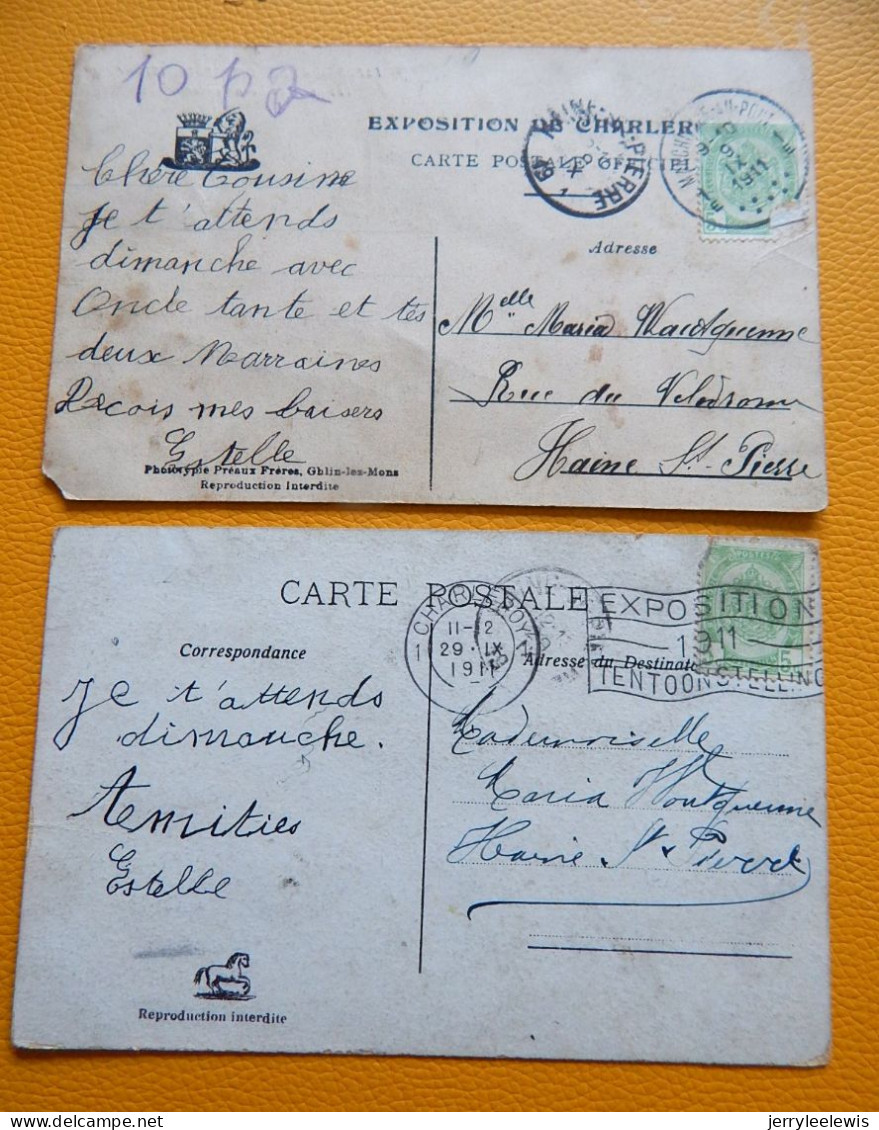 10 p
EXPOSITION DE CHARLER
CARTE POSTALE OFFICIEL
HAINE-ST-PIERRE
1911
Chère Cousine
Je t'attends
dimanche avec
Oncle tante et tes
deux Marraines
Reçois mes baisers
Estelle
Phototypie Préaux Frères, Ghlin-lez-Mons
Reproduction interdite
Adresse
Melle Maria
Rue du Vélodrome
Haine St. Pierre
CARTE POSTALE
Correspondance
Adresse du Destinata
CHARLEROY
11-2
29 IX
1911
EXPOSITION
1911
TENTOONSTELLING
POSTES
Je t'attends
dimanche.
Amitiés
Estelle
Mademoiselle
Maria Houtquenne
Haine St Pierre
Reproduction interdite
jerryleelewis